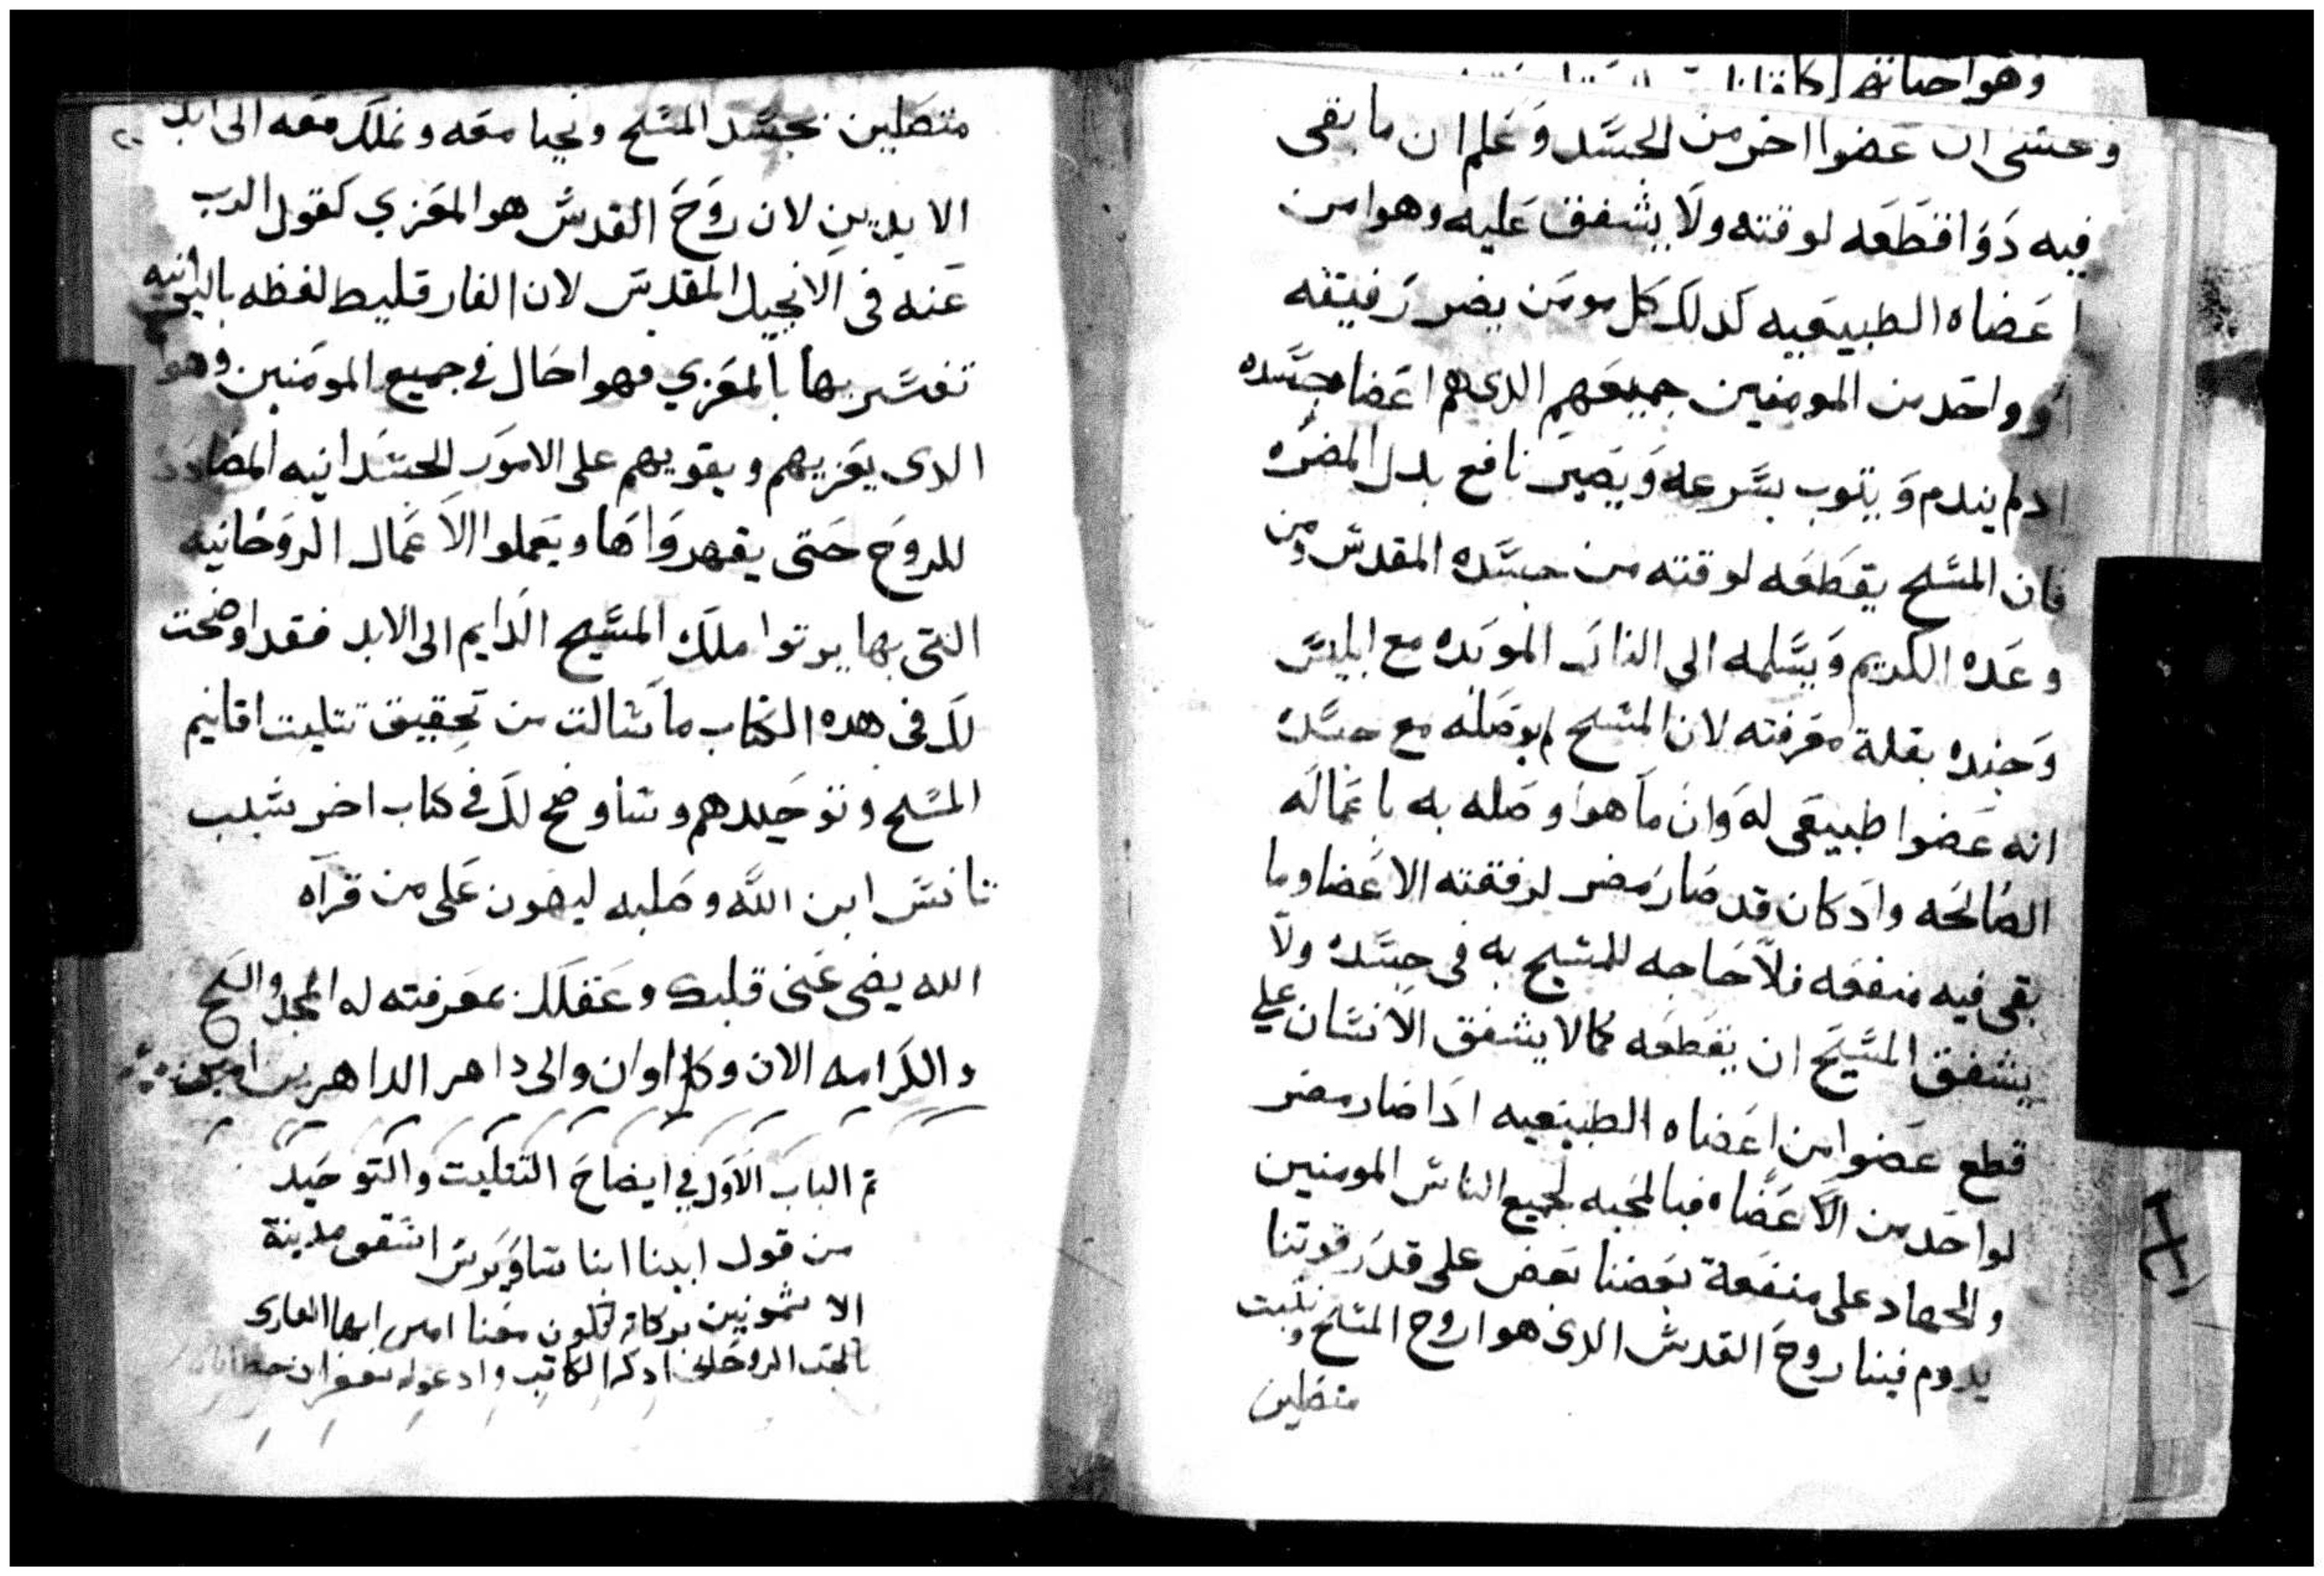 وهوا
وخشى ان عضوا اخر من الجسد وعلم ان ما بقى
فيه دوا اقطعه لوقته ولا يشفق عليه وهوا من
اعضاه الطبيعيه كدلك كل مومن يضر رفيقه
او واحد من المومنين جميعهم الدى هم اعضا جسده
ادلم يندم ويتوب بسرعه ويصير نافع بدل المضره
فان المسيح يقطعه لوقته من جسده المقدس ومن
وعده الكريم ويسلمه الى النار الموبده مع ابليس
وجنده بقلة معرفته لان المسيح لم يوصله مع جسده
انه عضوا طبيعى له وان ما هوا وصله به باعماله
الصالحه واد كان قد صار مضر لرفقته الاعضا وما
بقى فيه منفعه فلا حاجه للمسيح به فى جسده ولا
يشفق المسيح ان يقطعه كما لا يشفق الانسان على
قطع عضوا من اعضاه الطبيعيه ادا صار مضر
لواحد من الاعضاه فبالمحبه لجميع الناس المومنين
والجهاد على منفعة بعضنا بعض على قدر قوتنا
يدوم فينا روح القدس الدى هوا روح المسيح ونتبت
متصلين
متصلين بجسد المسيح ونحيا معه ونملك معه الى ابد
الابدين لان روح القدس هو المعزي كقول الرب
عنه فى الانجيل المقدس لان الفارقليط لفظه باليونانيه
تفسيرها بالمعزي فهوا حال في جميع المومنين وهو
الدى يعزيهم ويقويهم على الامور الجسدانيه المضادده
للروح حتى يقهروا اها ويعملوا الاعمال الروحانيه
التى بها يرتوا ملك المسيح الدايم الى الابد فقد اوضحت
لك فى هده الكتاب ما سالت من تحقيق تتليت اقانيم
المسيح وتوحيدهم وساوضح لك في كتاب اخر سبب
تانس ابن الله وصلبه ليهون على من قراه
الله يضى عينى قلبك وعقلك بمعرفته له المجد والسبح
والكرامه الان وكل اوان والى داهر الداهرين امين
تم الباب الاول في ايضاح التتليت والتوحيد
من قول ابينا انبا ساويرس اسقف مدينة
الاشمونين بركاته تكون معنا امين ايها القارى
بالحب الروحانى ادكر الكاتب وادعوله بغفران خطاياه